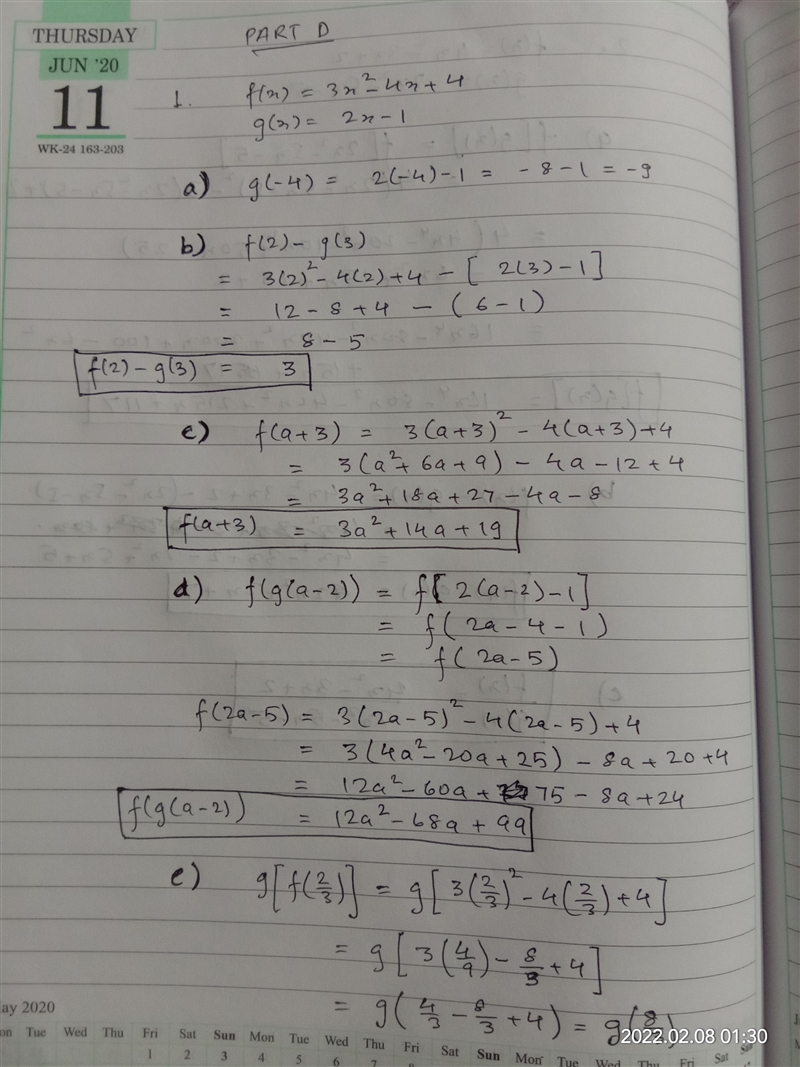 THURSDAY
JUN '20
11
WK-24 163-203
PART D
1. f(x) = 3x² - 4x + 4
g(x) = 2x - 1
a) g(-4) = 2(-4) - 1 = -8 - 1 = -9
b) f(2) - g(3)
= 3(2)² - 4(2) + 4 - [2(3) - 1]
= 12 - 8 + 4 - (6 - 1)
= 8 - 5
f(2) - g(3) = 3
c) f(a+3) = 3(a+3)² - 4(a+3) + 4
= 3(a² + 6a + 9) - 4a - 12 + 4
= 3a² + 18a + 27 - 4a - 8
f(a+3) = 3a² + 14a + 19
d) f(g(a-2)) = f[2(a-2) - 1]
= f(2a - 4 - 1)
= f(2a - 5)
f(2a-5) = 3(2a-5)² - 4(2a-5) + 4
= 3(4a² - 20a + 25) - 8a + 20 + 4
= 12a² - 60a + 75 - 8a + 24
f(g(a-2)) = 12a² - 68a + 99
e) g[f(2/3)] = g[3(2/3)² - 4(2/3) + 4]
= g[3(4/9) - 8/3 + 4]
= g(4/3 - 8/3 + 4) = g(8/
2022.02.08 01:30
ay 2020
on Tue Wed Thu Fri Sat Sun Mon Tue Wed Thu Fri Sat Sun Mon Tue Wed Thu Fri Sat
1 2 3 4 5 6 7